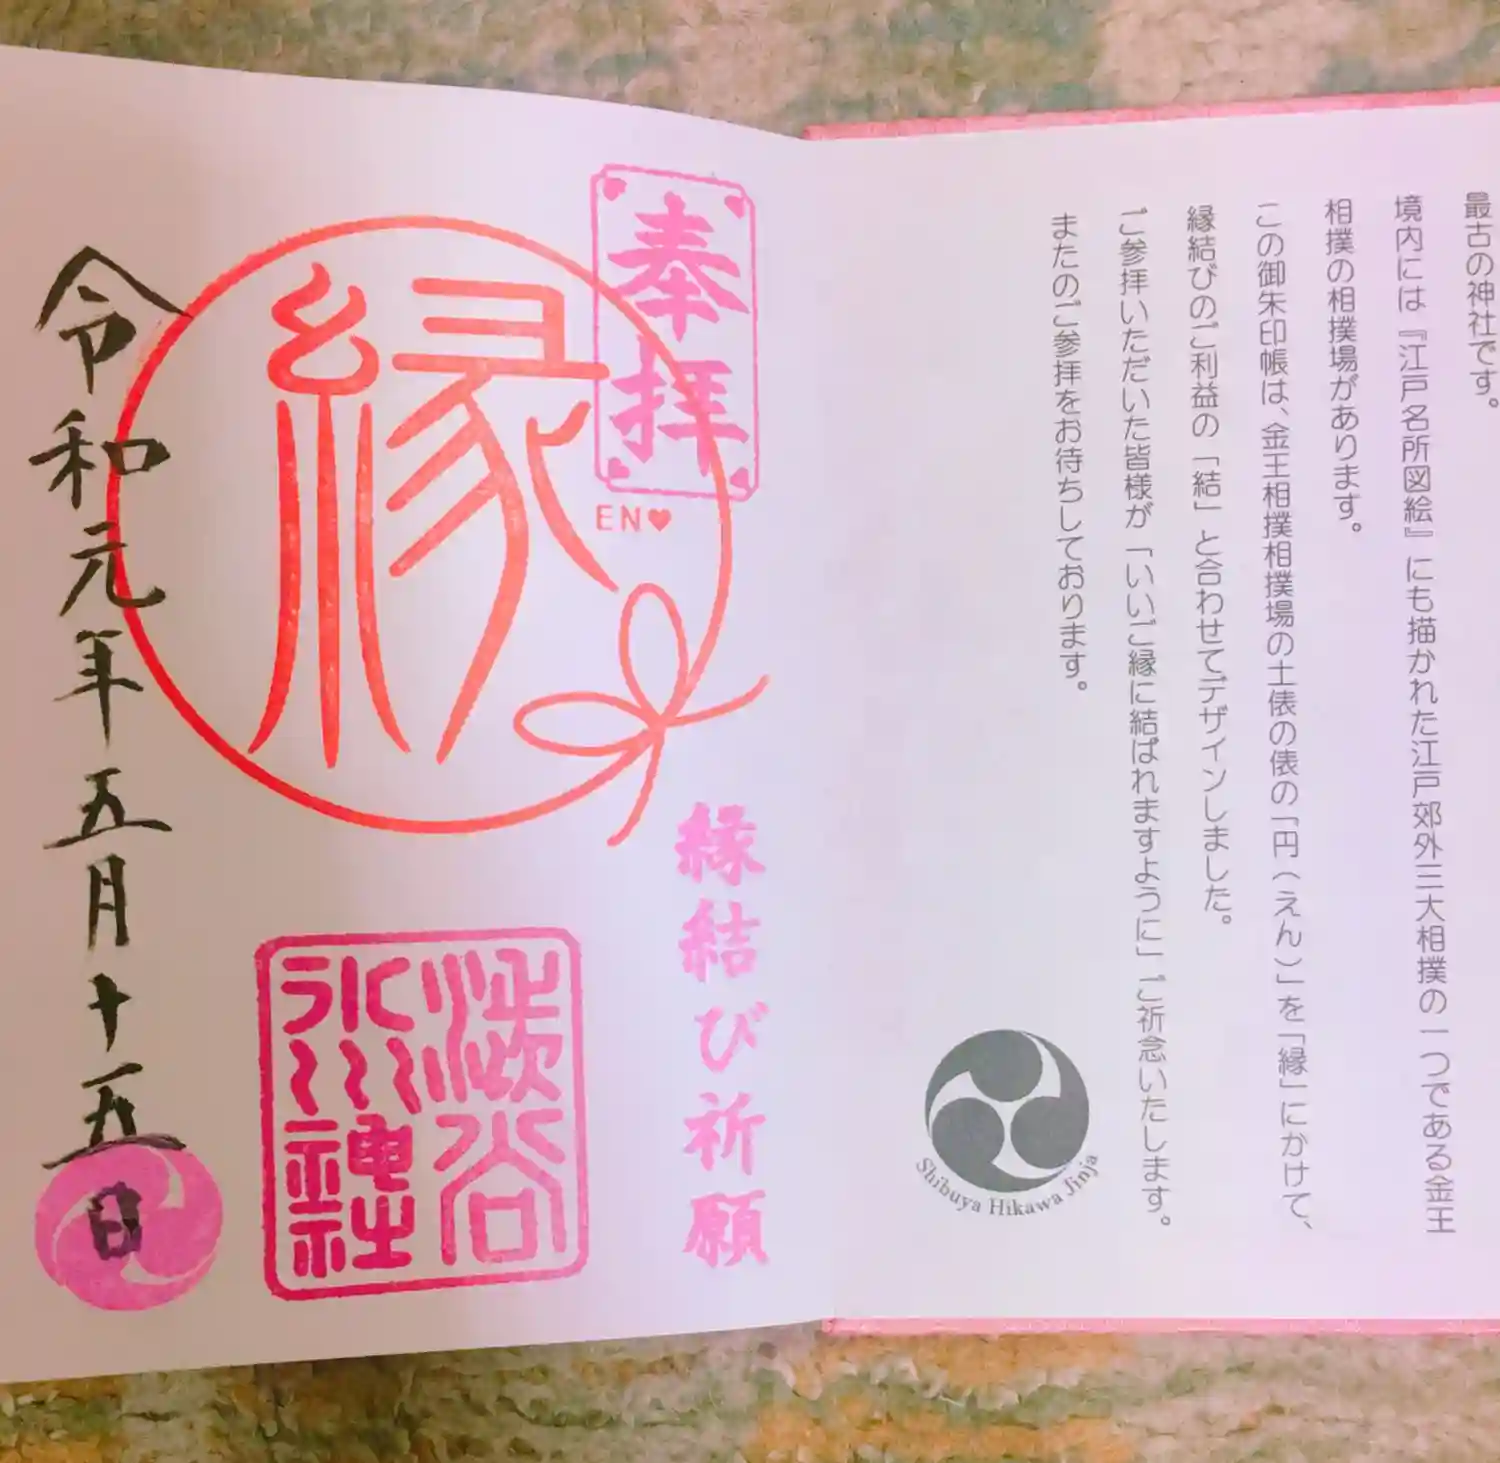 最古の神社です。
境内には『江戸名所図絵』にも描かれた江戸郊外三大相撲の一つである金王
相撲の相撲場があります。
この御朱印帳は、金王相撲相撲場の土俵の俵の「円（えん）」を「縁」にかけて、
縁結びのご利益の「結」と合わせてデザインしました。
ご参拝いただいた皆様が「いいご縁に結ばれますように」ご祈念いたします。
またのご参拝をお待ちしております。
Shibuya Hikawa Jinja
奉拝
EN♥
縁結び祈願
縁
渋谷
氷川神社
令和元年五月十五日